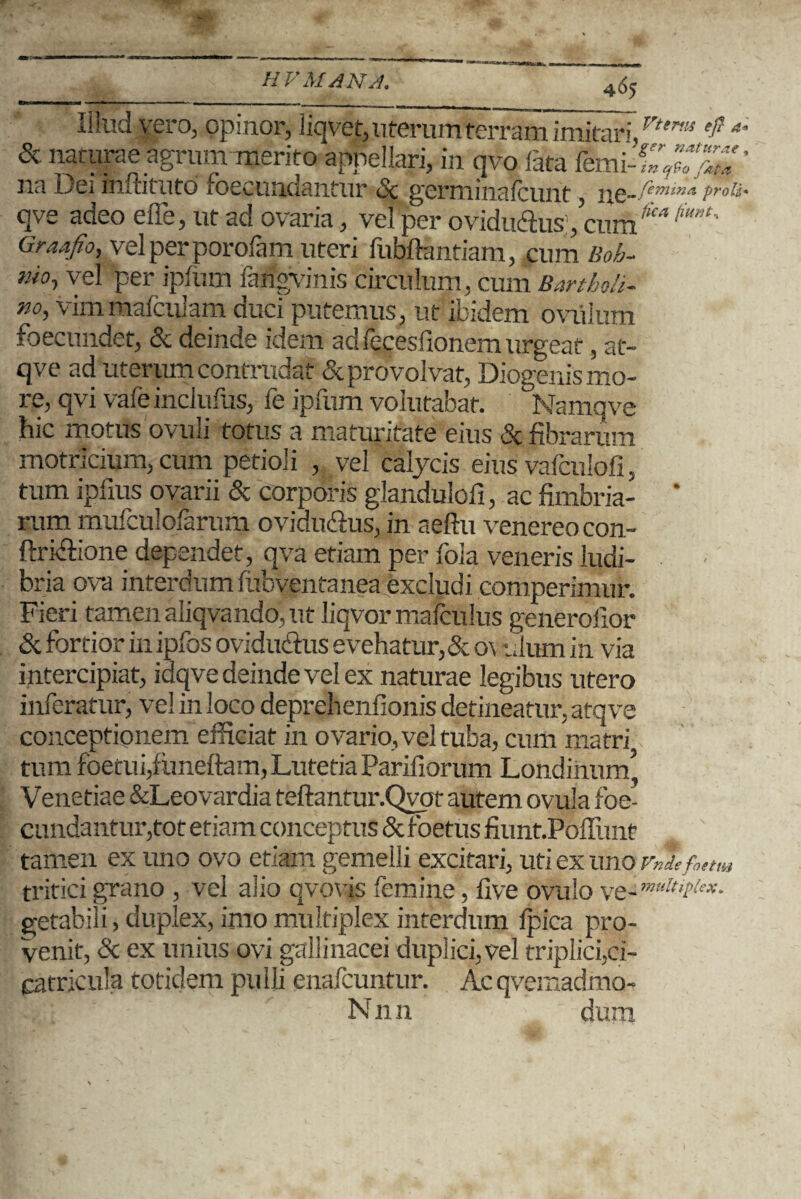 HVMANA. 465
Illud vero, opinor, liqvet, uterum terram imitari, Vterus eſt a-
& naturae agrum merito appellari, in qvo ſata ſemi- ger naturae,
na Dei inſtituto foecundantur & germinaſcunt, ne- in qvo ſata
qve adeo eſſe, ut ad ovaria, vel per oviductus, cum ſemina proli-
Graafio, vel per poroſam uteri ſubſtantiam, cum Boh- fica fiunt.
nio, vel per ipſum ſangvinis circulum, cum Bartholi-
no, vim maſculam duci putemus, ut ibidem ovulum
foecundet, & deinde idem ad ſecesſionem urgeat, at-
qve ad uterum contrudat & provolvat, Diogenis mo-
re, qvi vaſe incluſus, ſe ipſum volutabat. Namqve
hic motus ovuli totus a maturitate eius & fibrarum
motricium, cum petioli, vel calycis eius vaſculoſi,
tum ipſius ovarii & corporis glanduloſi, ac fimbria-
rum muſculoſarum oviductus, in aeſtu venereo con-
ſtrictione dependet, qva etiam per ſola veneris ludi-
bria ova interdum ſubventanea excludi comperimur.
Fieri tamen aliqvando, ut liqvor maſculus generoſior
& fortior in ipſos oviductus evehatur, & ovulum in via
intercipiat, idqve deinde vel ex naturae legibus utero
inferatur, vel in loco deprehenſionis detineatur, atqve
conceptionem efficiat in ovario, vel tuba, cum matri,
tum foetui, funeſtam, Lutetia Pariſiorum Londinum,
Venetiae & Leovardia teſtantur. Qvot autem ovula foe-
cundantur, tot etiam conceptus & foetus fiunt. Poſſunt
tamen ex uno ovo etiam gemelli excitari, uti ex uno Vnde foetus
tritici grano, vel alio qvovis ſemine, ſive ovulo ve- multiplex.
getabili, duplex, imo multiplex interdum ſpica pro-
venit, & ex unius ovi gallinacei duplici, vel triplici, ci-
catricula totidem pulli enaſcuntur. Ac qvemadmo-
Nnn dum